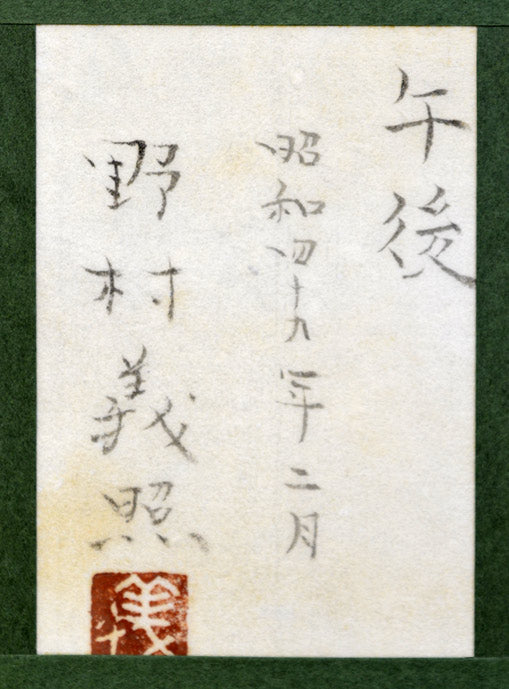 午後
昭和四十九年二月
野村義照
義